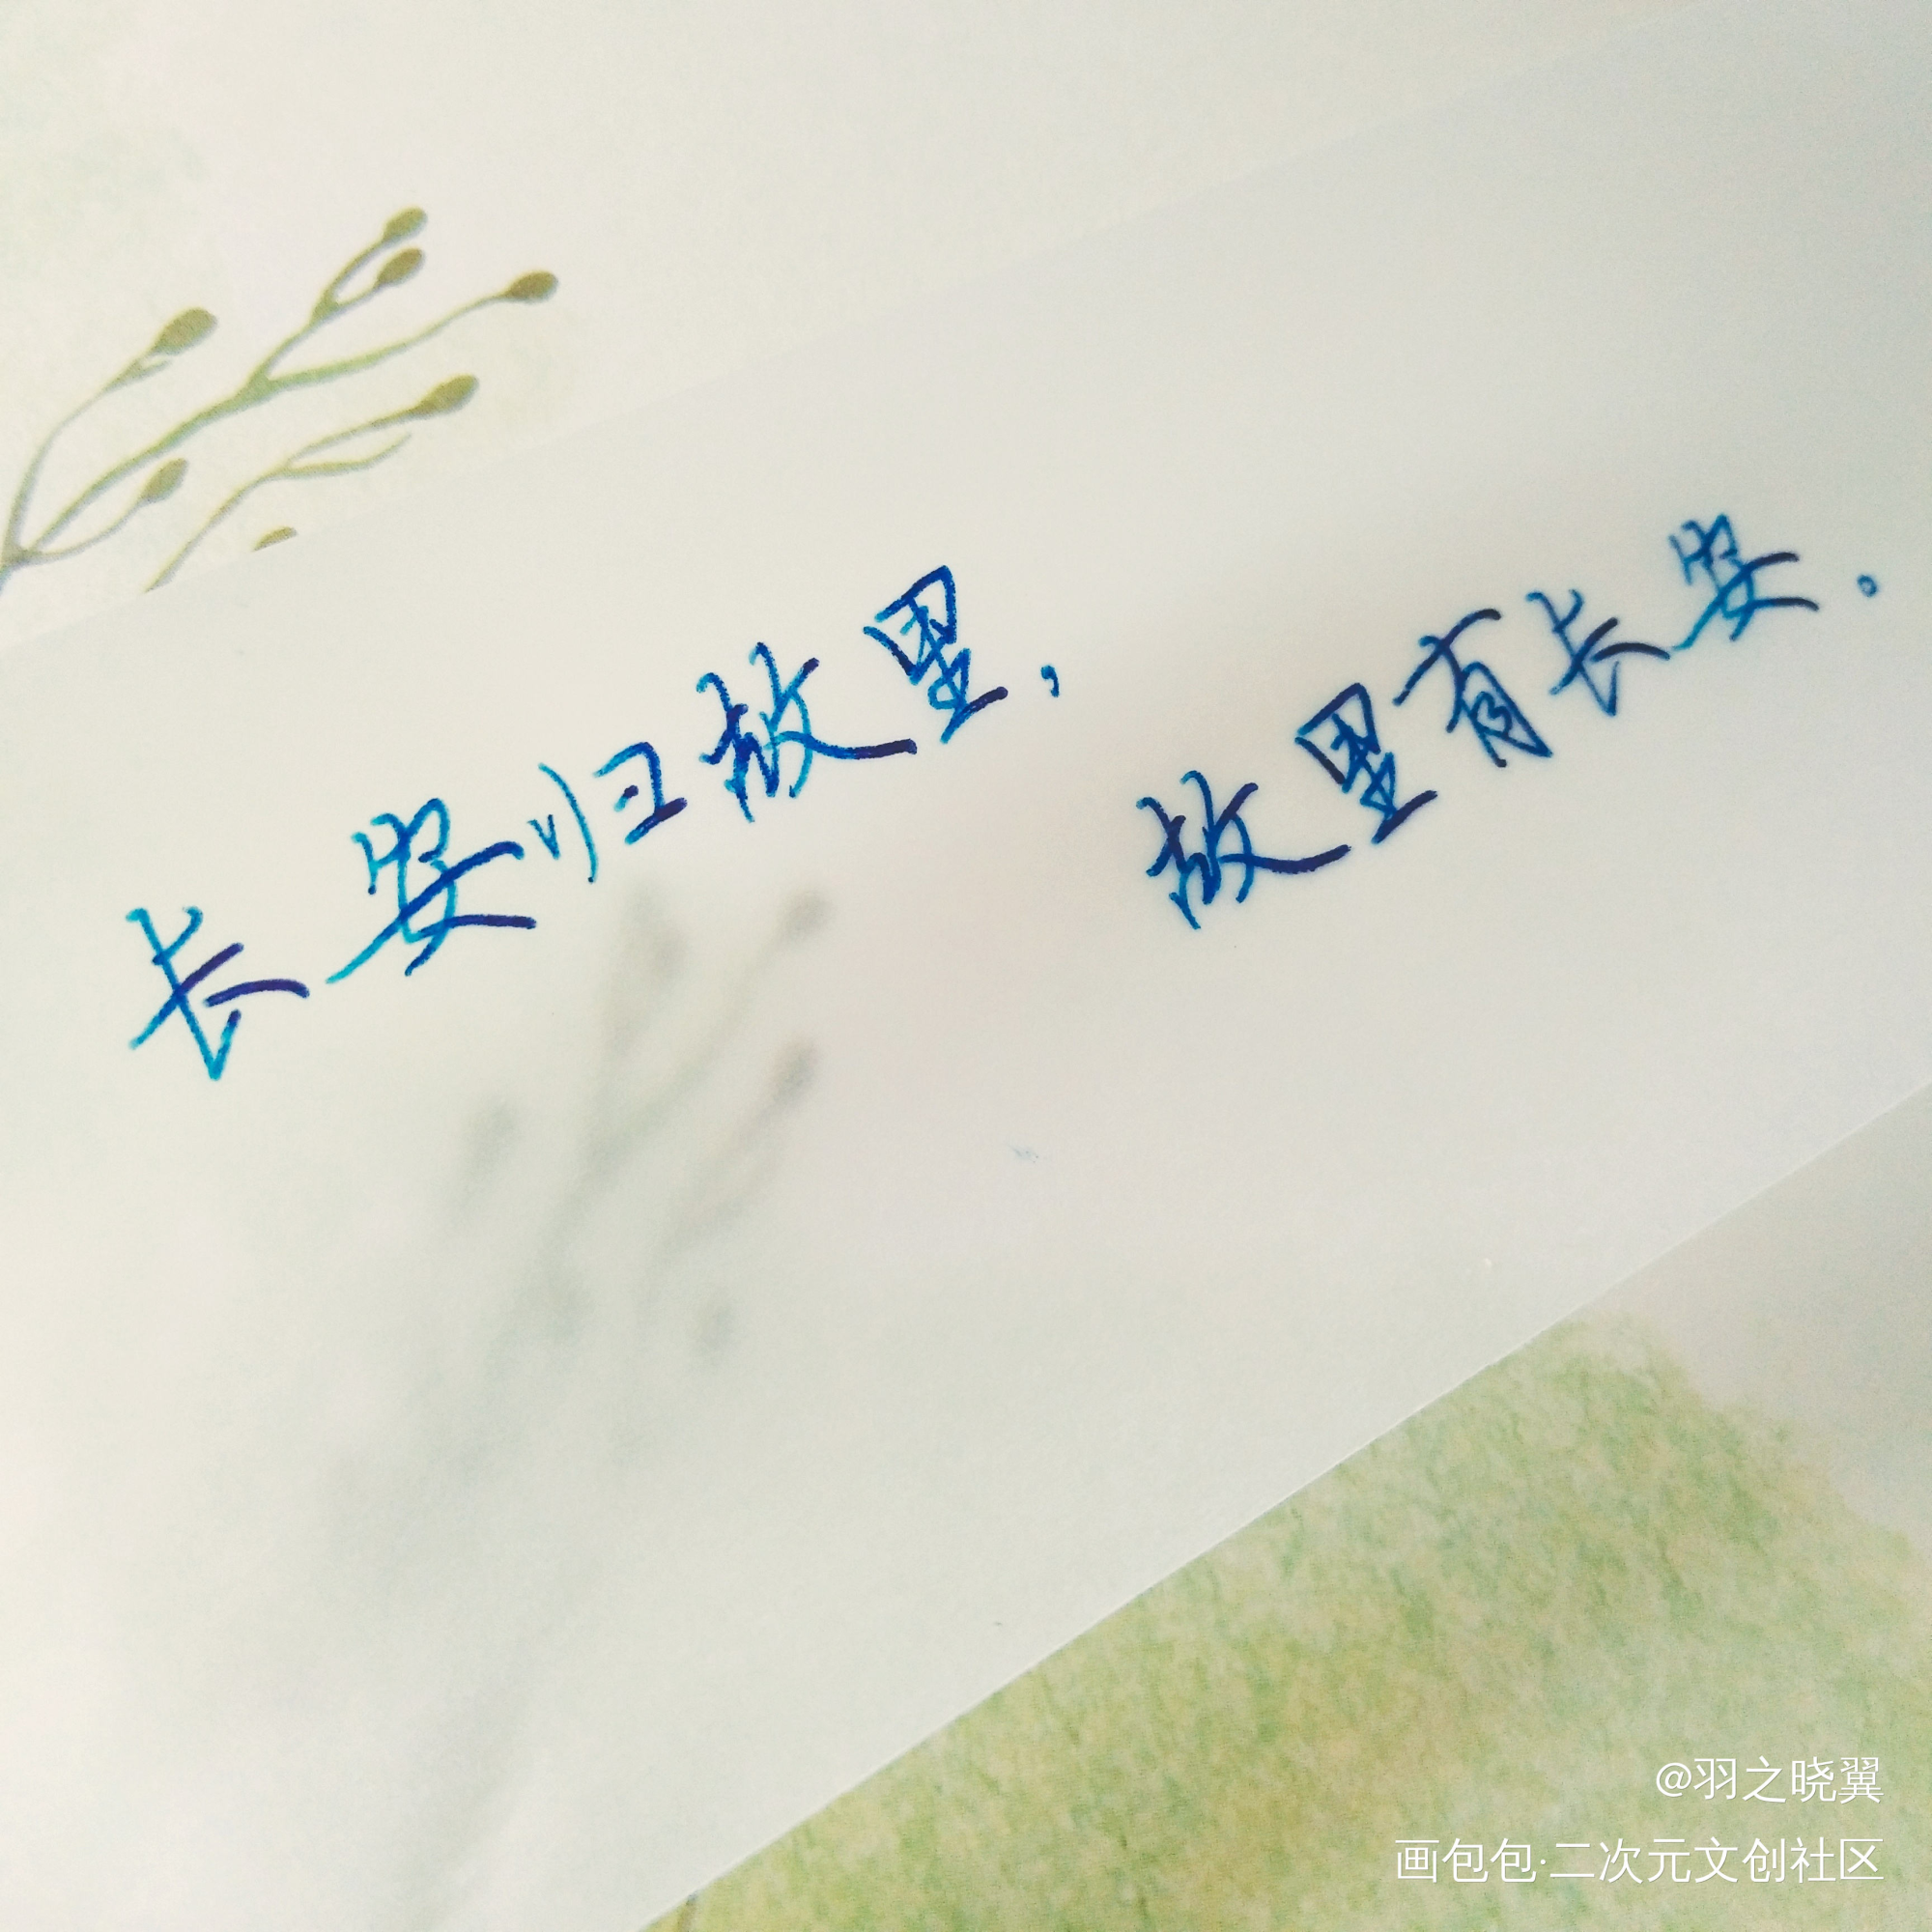 长安归故里，故里有长安。
@羽之晓翼
画包包·二次元文创社区